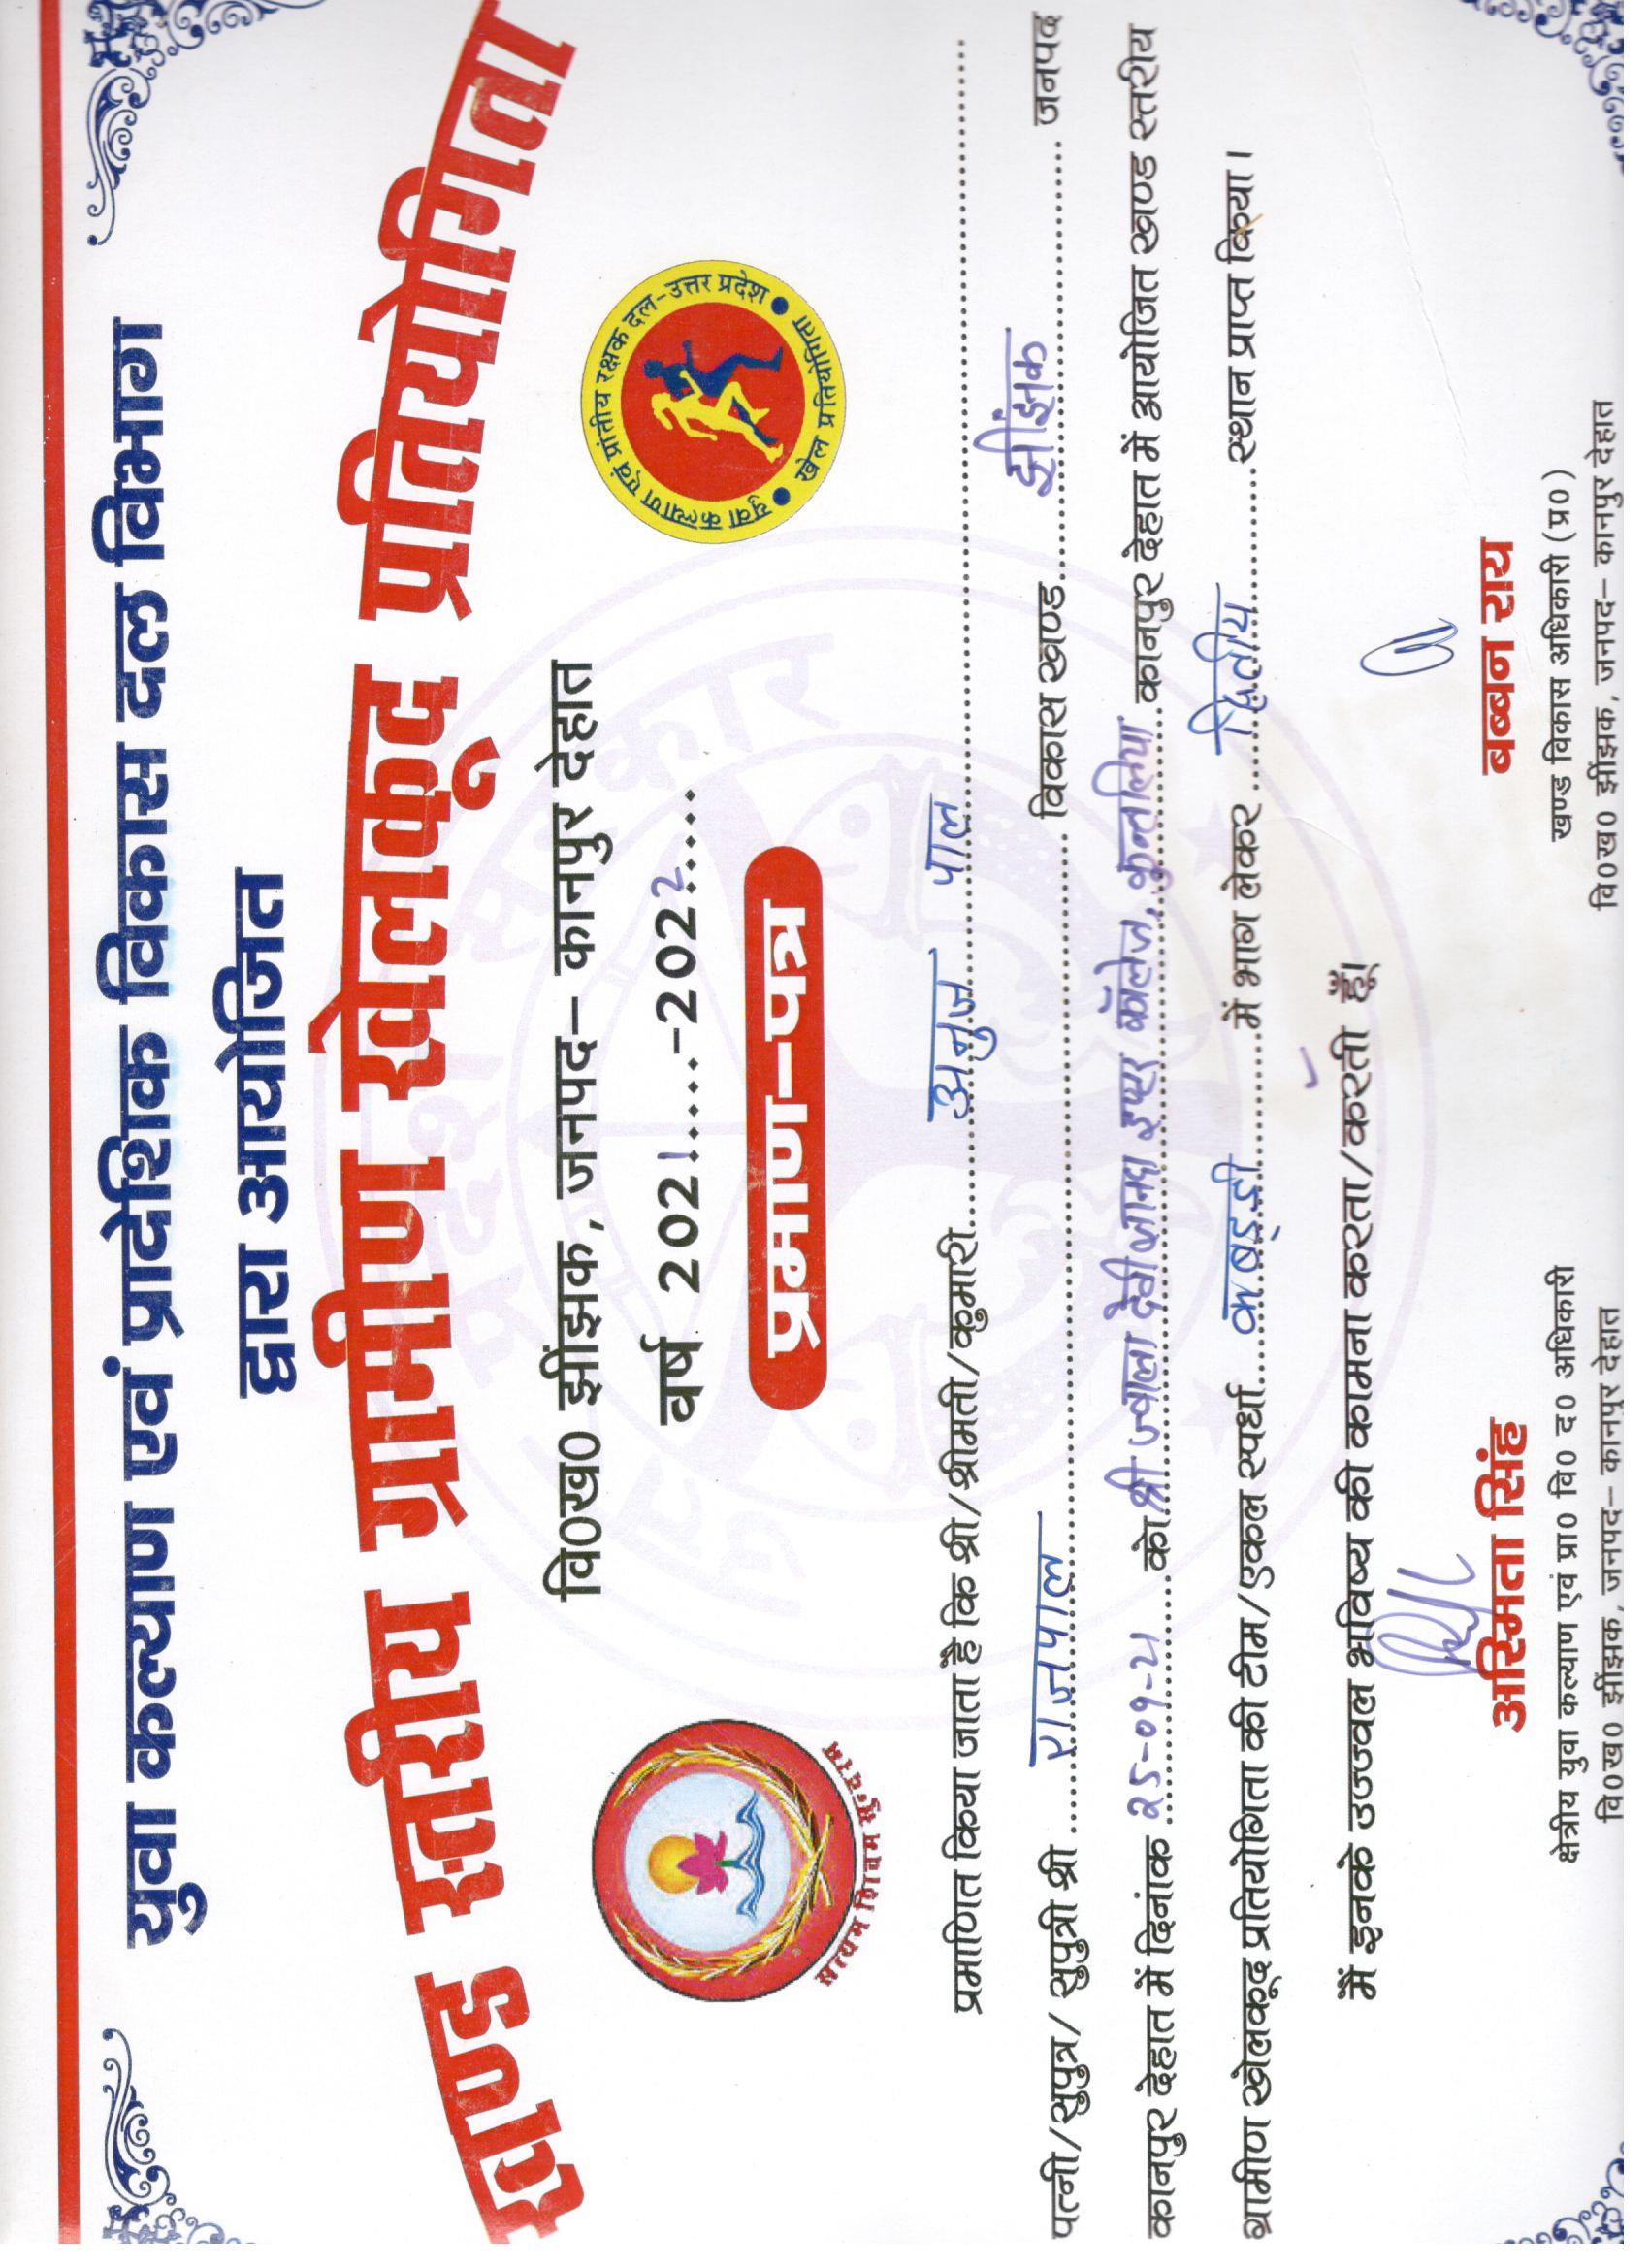 युवा कल्याण एवं प्रादेशिक विकास दल विभाग
द्वारा आयोजित
खण्ड स्तरीय ग्रामीण खेलकूद प्रतियोगिता
वि0ख0 झींझक, जनपद– कानपुर देहात
वर्ष 2021.....-2022.....
प्रमाण–पत्र
सत्यम शिवम सुन्दरम
युवा कल्याण एवं प्रांतीय रक्षक दल-उत्तर प्रदेश
खेल प्रतियोगिता
प्रमाणित किया जाता है कि श्री/श्रीमती/कुमारी..........अनुज पाल..........
पत्नी/सुपुत्र/ सुपुत्री श्री ......राजपाल.......... विकास खण्ड........झींझक.......... जनपद
कानपुर देहात में दिनांक 25-09-21 .....को श्री ज्वाला देवी इण्टर कॉलेज, कानपुर देहात में आयोजित खण्ड स्तरीय
ग्रामीण खेलकूद प्रतियोगिता की टीम/एकल स्पर्धा....कबड्डी..........में भाग लेकर ......द्वितीय..........स्थान प्राप्त किया।
मैं इनके उज्ज्वल भविष्य की कामना करता/करती हूँ।
अस्मिता सिंह
क्षेत्रीय युवा कल्याण एवं प्रा0 वि0 द0 अधिकारी
वि0ख0 झींझक, जनपद– कानपुर देहात
बब्बन राय
खण्ड विकास अधिकारी (प्र0)
वि0ख0 झींझक, जनपद– कानपुर देहात